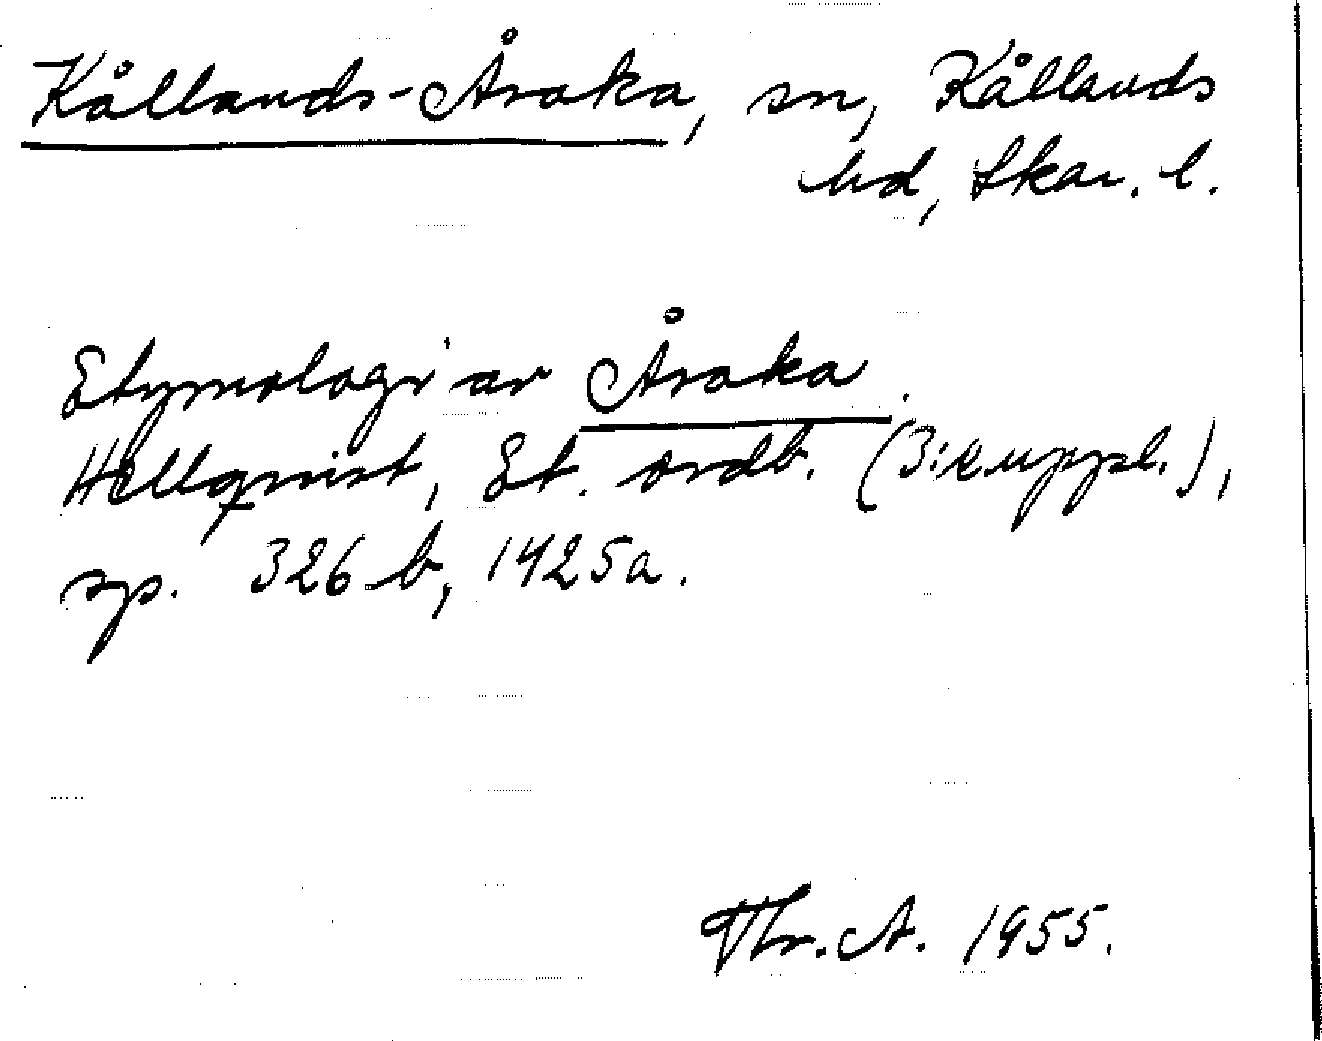 Kållands-Åsaka, sn, Kållands
hd, Skar. l.
Etymologi av Åsaka.
Hellqvist, Et. ordb. (3:e uppl.),
sp. 326 b, 1425a.
Thr. A. 1955.